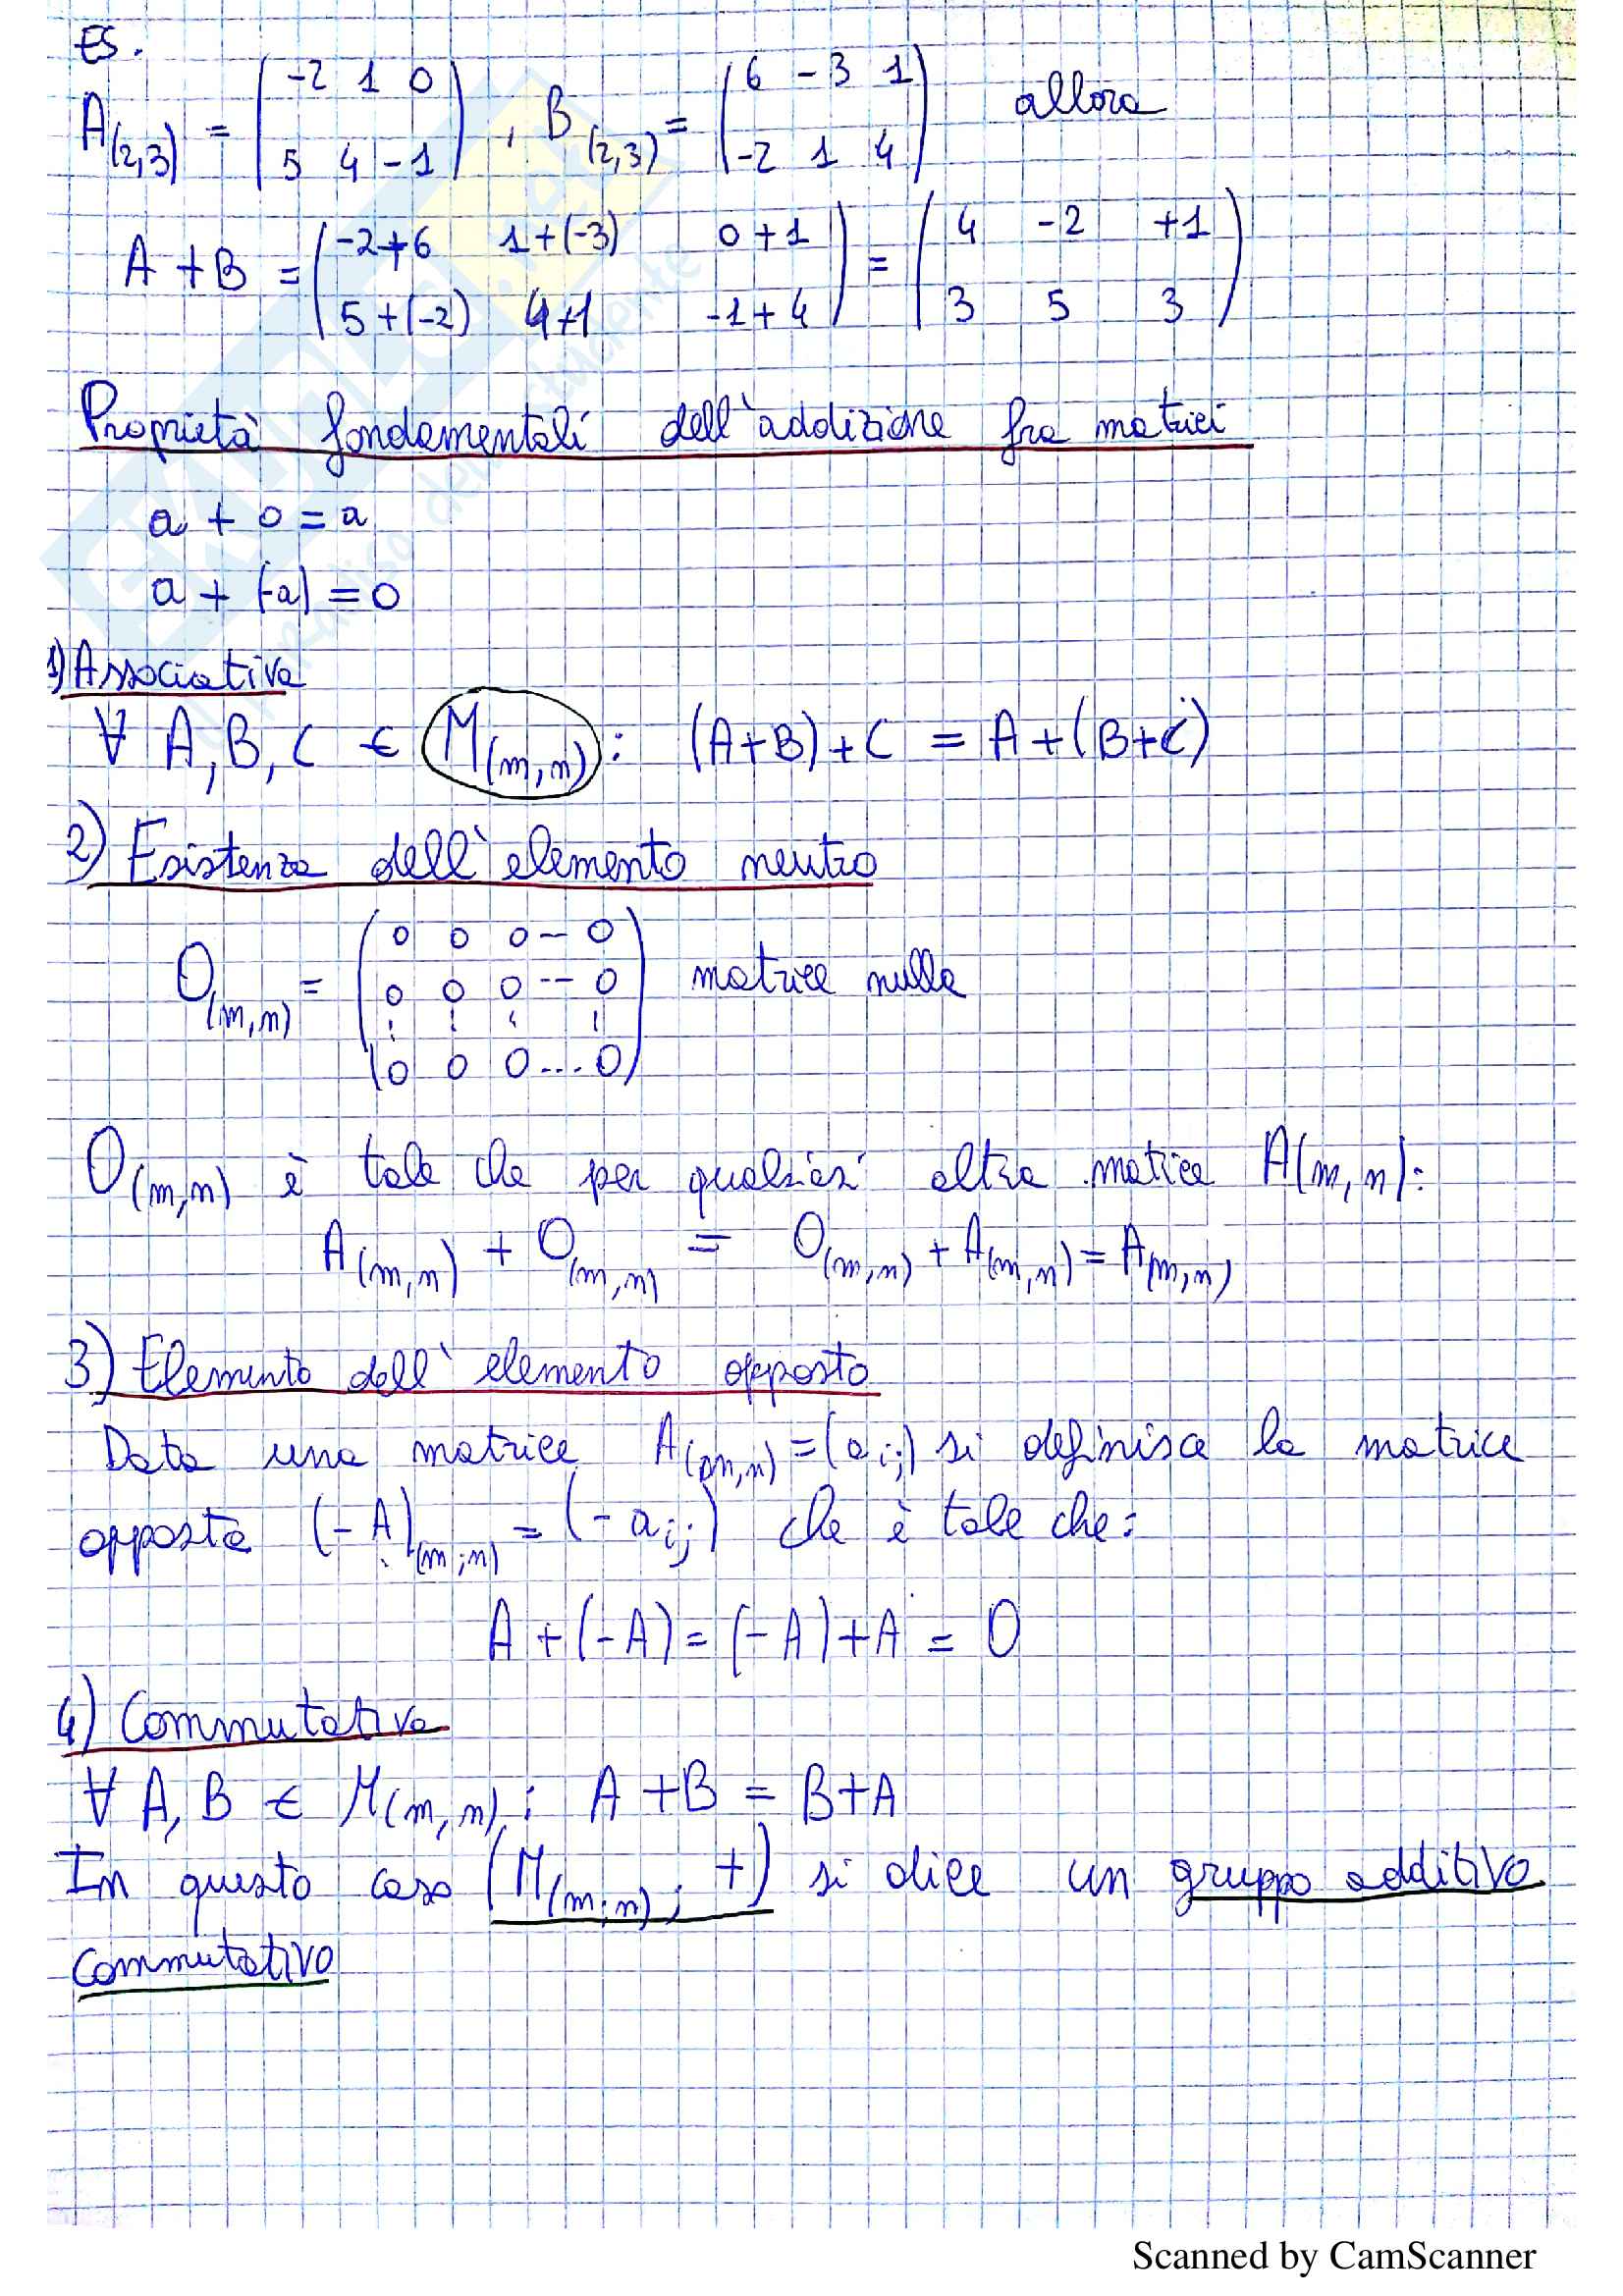 ES.
A(2,3) = ( -2 1 0 ; 5 4 -1 ) , B(2,3) = ( 6 -3 1 ; -2 1 4 ) allora
A + B = ( -2+6 1+(-3) 0+1 ; 5+(-2) 4+1 -1+4 ) = ( 4 -2 +1 ; 3 5 3 )
Proprietà fondamentali dell'addizione fra matrici
a + 0 = a
a + (-a) = 0
1) Associativa
∀ A, B, C ∈ M(m,n) : (A+B)+C = A+(B+C)
2) Esistenza dell'elemento neutro
O(m,n) = ( 0 0 0 -- 0 ; 0 0 0 --- 0 ; ⋮ ⋮ ⋮ ⋮ ; 0 0 0 ... 0 ) matrice nulla
O(m,n) è tale che per qualsiasi altra matice A(m,n):
A(m,n) + O(m,n) = O(m,n) + A(m,n) = A(m,n)
3) Elemento dell'elemento opposto
Data una matrice A(m,n) = (aij) si definisce la matrice
opposta (-A)(m;n) = (-aij) che è tale che:
A + (-A) = (-A) + A = O
4) Commutativa
∀ A, B ∈ M(m,n) : A + B = B + A
In questo caso (M(m;n) ; +) si dice un gruppo additivo
commutativo
Scanned by CamScanner